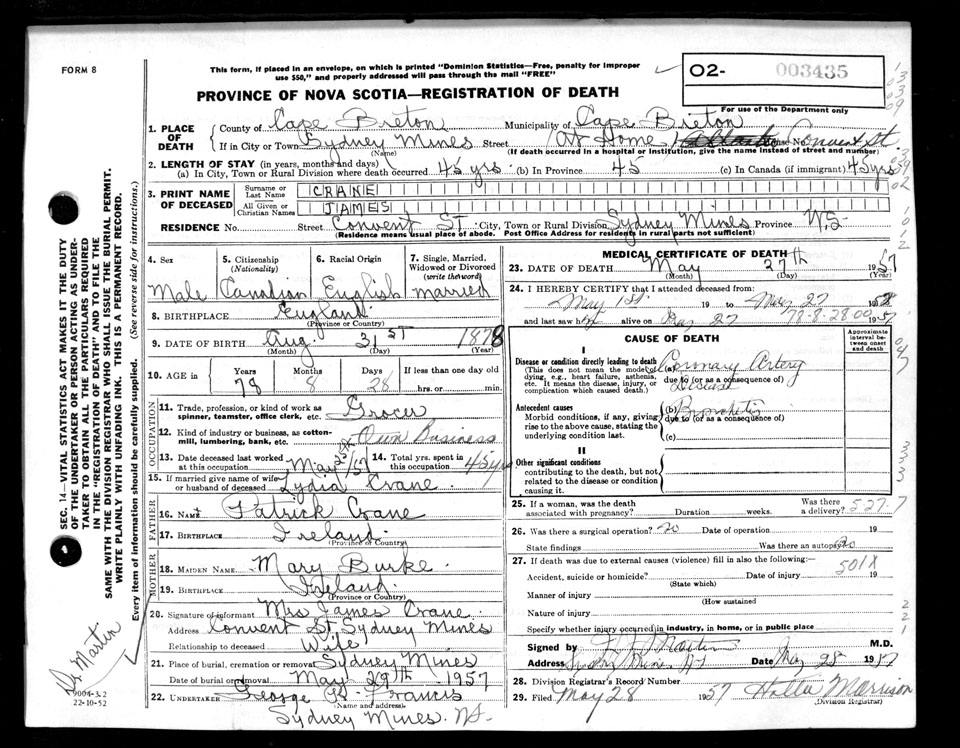 FORM 8
This form, if placed in an envelope, on which is printed "Dominion Statistics—Free, penalty for improper
use $50," and properly addressed will pass through the mail "FREE"
O2- 003435
PROVINCE OF NOVA SCOTIA—REGISTRATION OF DEATH
For use of the Department only
1. PLACE OF DEATH
County of Cape Breton Municipality of Cape Breton
If in City or Town Sydney Mines Street At Home House No. Convent St.
(Name) (If death occurred in a hospital or institution, give the name instead of street and number)
2. LENGTH OF STAY (in years, months and days)
(a) In City, Town or Rural Division where death occurred 45 yrs. (b) In Province 45 (c) In Canada (if immigrant) 45 yrs
3. PRINT NAME OF DECEASED
Surname or Last Name CRANE
All Given or Christian Names JAMES
RESIDENCE No. Street Convent ST City, Town or Rural Division Sydney Mines Province N.S.
(Residence means usual place of abode. Post Office Address for residents in rural parts not sufficient)
4. Sex
Male
5. Citizenship
(Nationality)
Canadian
6. Racial Origin
English
7. Single, Married, Widowed or Divorced
(write the word)
married
8. BIRTHPLACE England
(Province or Country)
9. DATE OF BIRTH Aug. 31st 1878
(Month) (Day) (Year)
10. AGE in Years Months Days If less than one day
78 8 28 hrs. or min.
OCCUPATION
11. Trade, profession, or kind of work as
spinner, teamster, office clerk, etc. Grocer
12. Kind of industry or business, as cotton-
mill, lumbering, bank, etc. Own Business
13. Date deceased last worked
at this occupation May 25th/57
14. Total yrs. spent in
this occupation 45 yrs
15. If married give name of wife
or husband of deceased Lydia Crane
FATHER
16. Name Patrick Crane
17. BIRTHPLACE Ireland
(Province or Country)
MOTHER
18. MAIDEN NAME Mary Burke
19. BIRTHPLACE Ireland
(Province or Country)
20. Signature of informant Mrs James Crane
Address Convent St Sydney Mines
Relationship to deceased Wife
21. Place of burial, cremation or removal Sydney Mines
Date of burial or removal May 29th 1957
22. UNDERTAKER George Francis
(Name and address)
Sydney Mines. N.S.
MEDICAL CERTIFICATE OF DEATH
23. DATE OF DEATH May 27th 1957
(Month) (Day) (Year)
24. I HEREBY CERTIFY that I attended deceased from:
May 1st 19 to May 27 19
and last saw h alive on May 27 1957
78-8-28 00
CAUSE OF DEATH
Approximate interval between onset and death
I
Disease or condition directly leading to death
(This does not mean the mode of
dying, e.g., heart failure, asthenia,
etc. It means the disease, injury, or
complication which caused death.)
(a) Coronary Artery
due to (or as a consequence of)
Disease
Antecedent causes
Morbid conditions, if any, giving
rise to the above cause, stating the
underlying condition last.
(b) Bronchitis
due to (or as a consequence of)
(c)
II
Other significant conditions
contributing to the death, but not
related to the disease or condition
causing it.
25. If a woman, was the death
associated with pregnancy? Duration weeks. Was there a delivery?
527.7
26. Was there a surgical operation? no Date of operation 19
State findings Was there an autopsy? no
27. If death was due to external causes (violence) fill in also the following:—
501X
Accident, suicide or homicide? Date of injury 19
(State which)
Manner of injury
(How sustained
Nature of injury
Specify whether injury occurred in industry, in home, or in public place
Signed by Martin M.D.
Address Sydney Mines NS Date May 28 1957
28. Division Registrar's Record Number
29. Filed May 28 1957 Morrison
(Division Registrar)
SEC. 14—VITAL STATISTICS ACT MAKES IT THE DUTY
OF THE UNDERTAKER OR PERSON ACTING AS UNDER-
TAKER TO OBTAIN ALL THE PARTICULARS REQUIRED
IN THE "REGISTRATION OF DEATH" AND TO FILE THE
SAME WITH THE DIVISION REGISTRAR WHO SHALL ISSUE THE BURIAL PERMIT.
WRITE PLAINLY WITH UNFADING INK. THIS IS A PERMANENT RECORD.
Every item of information should be carefully supplied. (See reverse side for instructions.)
Dr. Martin
9004-3.2
22-10-52